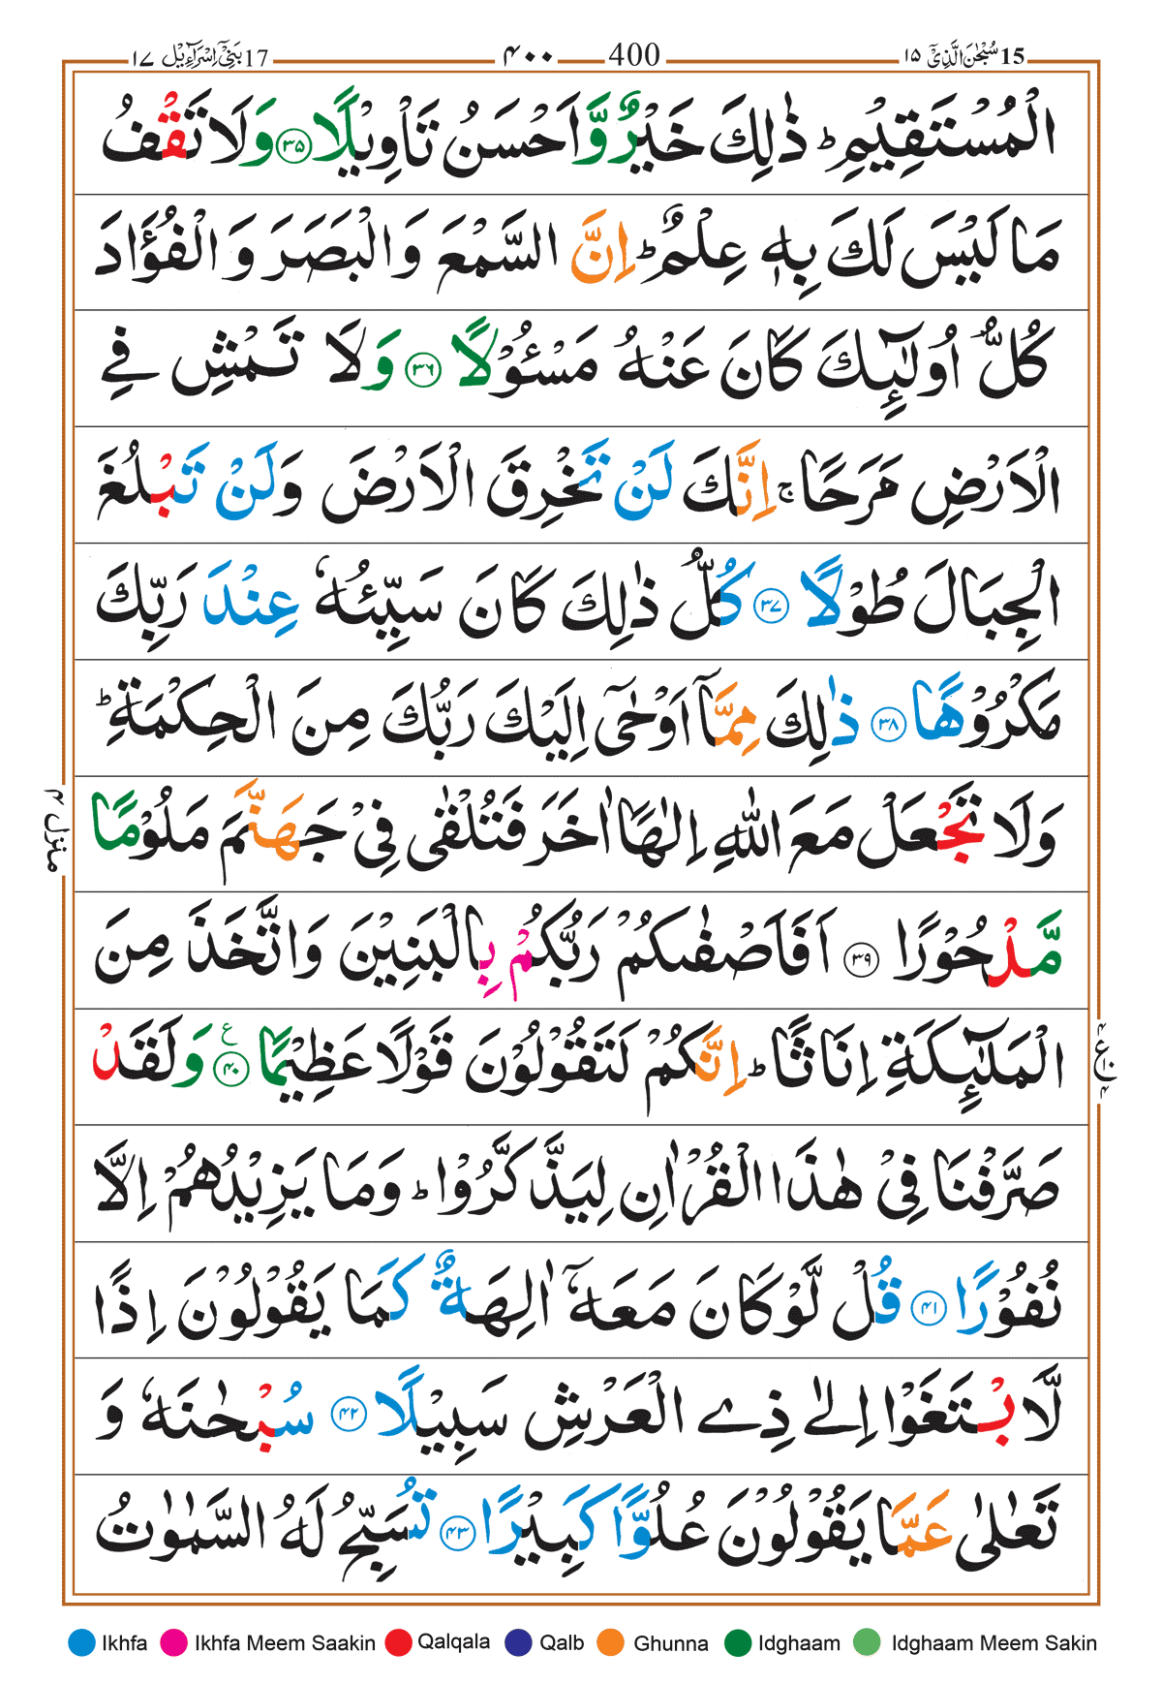 15 سُبْحٰنَ الَّذِیْٓ ۱۵
400 ۴۰۰
17 بَنِیْٓ اِسْرَآءِیْل ۱۷
الْمُسْتَقِیْمِ ؕ ذٰلِكَ خَیْرٌ وَّاَحْسَنُ تَاْوِیْلًا ۳۵ وَلَا تَقْفُ
مَا لَیْسَ لَكَ بِهٖ عِلْمٌ ؕ اِنَّ السَّمْعَ وَالْبَصَرَ وَ الْفُؤَادَ
كُلُّ اُولٰٓىِٕكَ كَانَ عَنْهُ مَسْـُٔوْلًا ۳۶ وَلَا تَمْشِ فِی
الْاَرْضِ مَرَحًا ۚ اِنَّكَ لَنْ تَخْرِقَ الْاَرْضَ وَلَنْ تَبْلُغَ
الْجِبَالَ طُوْلًا ۳۷ كُلُّ ذٰلِكَ كَانَ سَیِّئُهٗ عِنْدَ رَبِّكَ
مَكْرُوْهًا ۳۸ ذٰلِكَ مِمَّاۤ اَوْحٰۤی اِلَیْكَ رَبُّكَ مِنَ الْحِكْمَةِ ؕ
وَلَا تَجْعَلْ مَعَ اللّٰهِ اِلٰهًا اٰخَرَ فَتُلْقٰی فِیْ جَهَنَّمَ مَلُوْمًا
مَّدْحُوْرًا ۳۹ اَفَاَصْفٰىكُمْ رَبُّكُمْ بِالْبَنِیْنَ وَاتَّخَذَ مِنَ
الْمَلٰٓىِٕكَةِ اِنَاثًا ؕ اِنَّكُمْ لَتَقُوْلُوْنَ قَوْلًا عَظِیْمًا ۴۰ ع وَلَقَدْ
صَرَّفْنَا فِیْ هٰذَا الْقُرْاٰنِ لِیَذَّكَّرُوْا ؕ وَمَا یَزِیْدُهُمْ اِلَّا
نُفُوْرًا ۴۱ قُلْ لَّوْ كَانَ مَعَهٗۤ اٰلِهَةٌ كَمَا یَقُوْلُوْنَ اِذًا
لَّابْتَغَوْا اِلٰی ذِی الْعَرْشِ سَبِیْلًا ۴۲ سُبْحٰنَهٗ وَ
تَعٰلٰی عَمَّا یَقُوْلُوْنَ عُلُوًّا كَبِیْرًا ۴۳ تُسَبِّحُ لَهُ السَّمٰوٰتُ
منزل ۴
Ikhfa Ikhfa Meem Saakin Qalqala Qalb Ghunna Idghaam Idghaam Meem Sakin